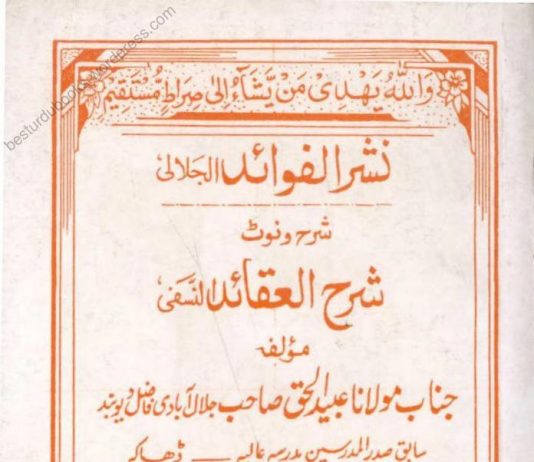 وَاللّٰهُ يَهْدِىْ مَنْ يَّشَآءُ اِلٰى صِرَاطٍ مُّسْتَقِيْمٍ
besturdubooks.wordpress.com
نشر الفوائد الجلالی
شرح و نوٹ
شرح العقائد النسفی
مؤلفہ
جناب مولانا عبید الحق صاحب جلال آبادی فاضل دیوبند
سابق صدر المدرسین مدرسہ عالیہ ــــ ڈھاکہ